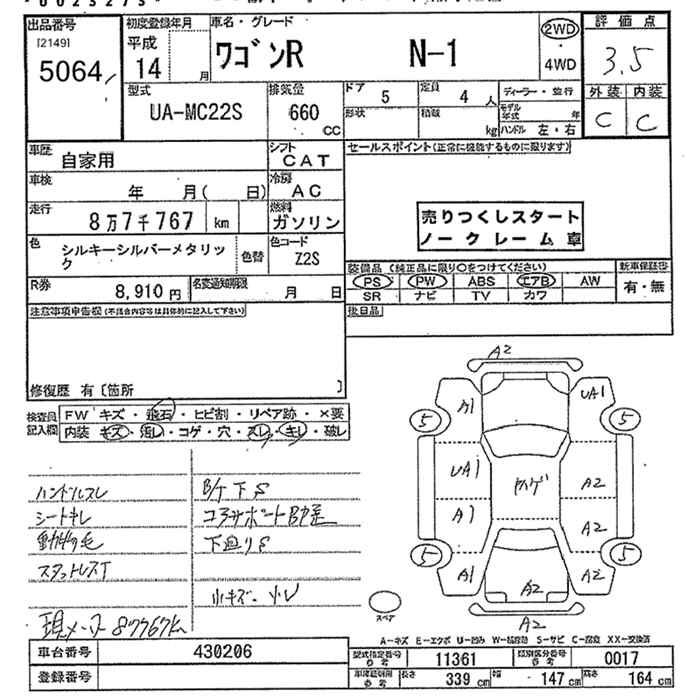 出品番号 初度登録年月 車名・グレード 評価点
[2149] 5064 平成 14 月 ワゴンR N-1 2WD・4WD 3.5
外装 内装
C C
型式 排気量 ドア 5 定員 4 人 ディーラー・並行
UA-MC22S 660 CC 形状 積載 kg モデル年式 年
ハンドル 左・右
車歴 自家用 シフト CAT セールスポイント(正常に機能するものに限ります)
車検 年 月( 日) 冷房 AC
走行 8万7千767 km 燃料 ガソリン
売りつくしスタート
ノークレーム車
色 シルキーシルバーメタリック 色替 色コード Z2S
装備品 (純正品に限り○をつけてください) 新車保証書
PS PW ABS エアB AW 有・無
SR ナビ TV カワ
R券 8,910 円 名変通知期限 月 日
注意事項申告欄(不具合内容等は具体的に記入して下さい) 後日品
修復歴 有〔箇所 〕
検査員記入欄 FW キズ・飛石・ヒビ割・リペア跡・×要
内装 キズ・汚レ・コゲ・穴・スレ・キレ・破レ
A2
A1 UA1
5 5
UA1 ヤハゲ A2
A1 A2
5 5
A1 A2 A2
A2
スペア
ハンドルスレ B/ケ下S
シートキレ コアサポートB歪
動物毛 下廻りS
スタットレスT
小キズ・凹
現メーター 87767km
A-キズ E-エクボ U-凹み W-補修跡 S-サビ C-腐食 XX-交換済
車台番号 430206 型式指定番号 参考 11361 類別区分番号 参考 0017
登録番号 車庫証明用 参考 長さ 339 cm 幅 147 cm 高さ 164 cm